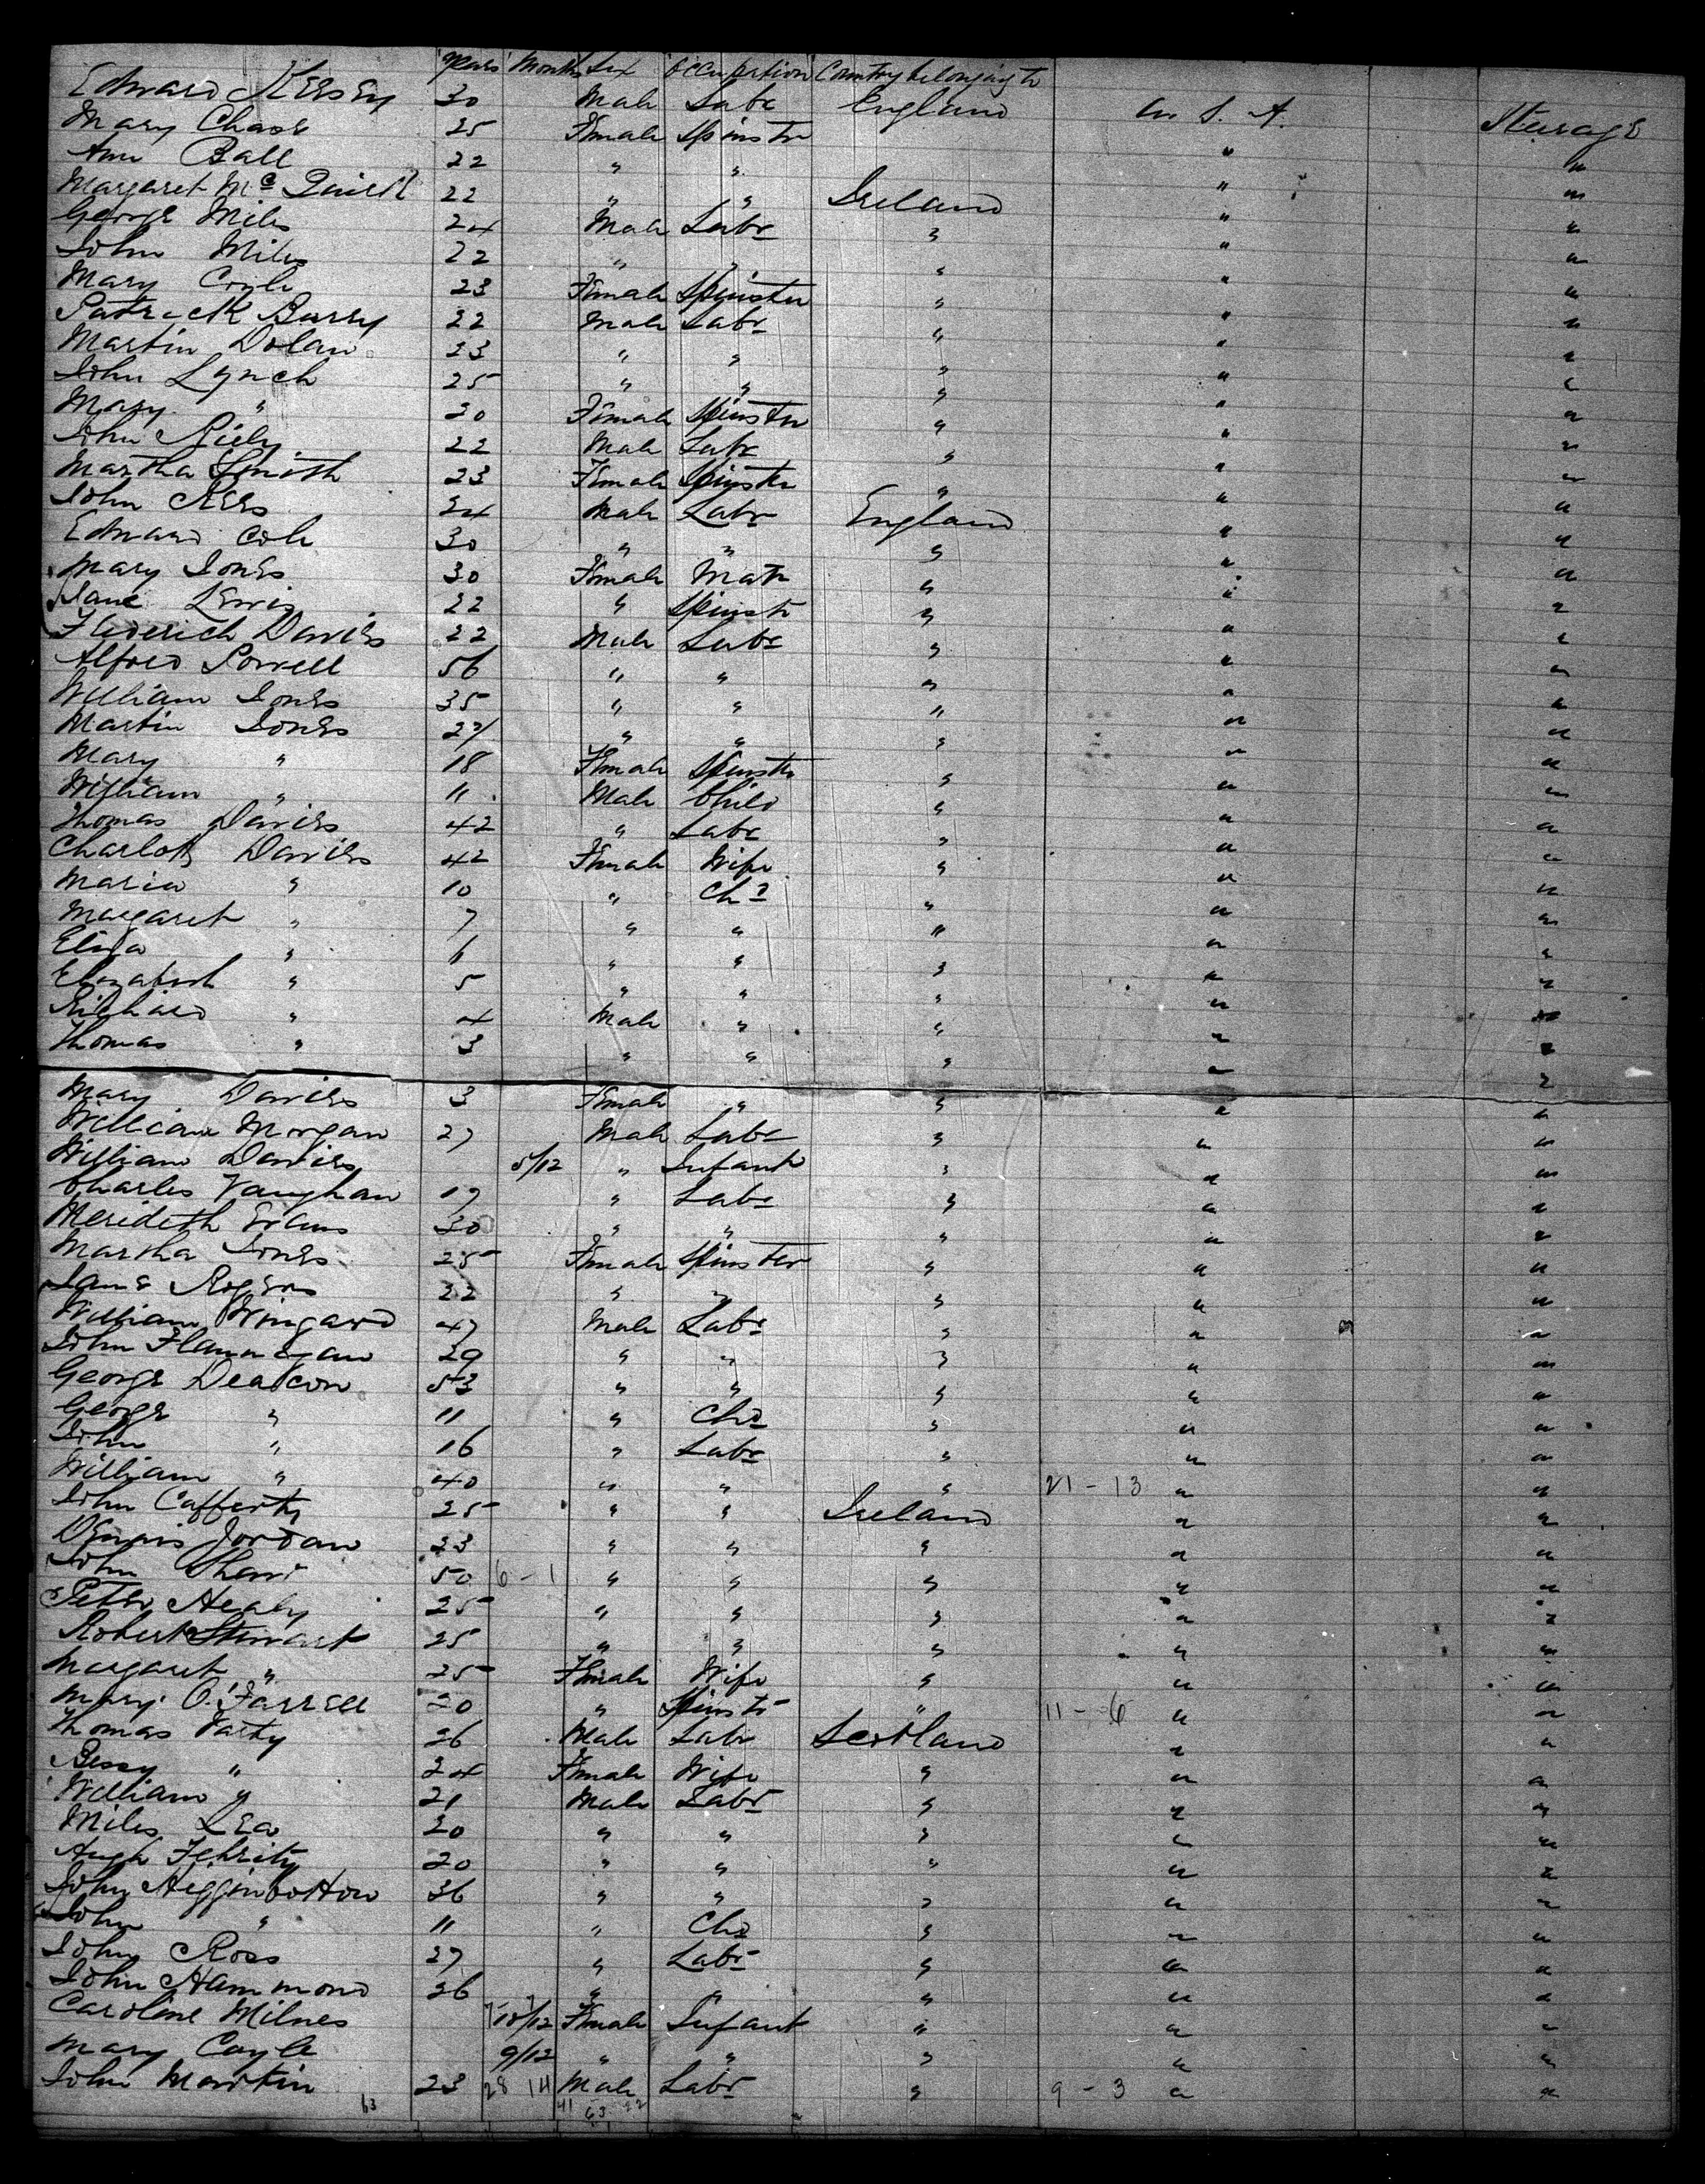 years months Sex Occupation Country belonging to
Edward Kersey 30 Male Labr England U. S. A. Steerage
Mary Chase 25 Female Spinstr " "
Ann Ball 22 " " " "
Margaret Mc 22 " " Ireland " "
George Miles 24 Male Labr " " "
John Miles 22 " " " " "
Mary Coyle 23 Female Spinster " " "
Patrick Barry 22 Male Labr " " "
Martin Dolan 23 " " " " "
John Lynch 25 " " " " "
Mary " 20 Female Spinster " " "
John Riely 22 Male Labr " " "
Martha Smith 23 Female Spinster " " "
John Rees 24 Male Labr England " "
Edward Cole 30 " " " " "
Mary Jones 30 Female Matr " " "
Jane Lewis 22 " Spinstr " " "
Frederich Davies 22 Male Labr " " "
Alfred Powell 56 " " " " "
William Jones 35 " " " " "
Martin Jones 27 " " " " "
Mary " 18 Female Spinstr " " "
William " 11 Male Child " " "
Thomas Davies 42 " Labr " " "
Charlott Davies 42 Female Wife " " "
Maria " 10 " Chd " " "
Margaret " 7 " " " " "
Eliza " 6 " " " " "
Elizabeth " 5 " " " " "
Richard " 4 Male " " " "
Thomas " 3 " " " " "
Mary Davies 3 Female " " " "
William Morgan 27 Male Labr " " "
William Davies 5/12 " Infant " " "
Charles Vaughan 19 " Labr " " "
Merideth Evans 30 " " " " "
Martha Jones 25 Female Spinster " " "
Jane Rogers 22 " " " " "
William Wingard 47 Male Labr " " "
John Flannegan 29 " " " " "
George Deacon 53 " " " " "
George " 11 " Chd " " "
John " 16 " Labr " " "
William " 40 " " " 21 - 13 " "
John Cafferty 25 " " Ireland " "
Dennis Jordan 23 " " " " "
John 50 6 - 1 " " " " "
Peter Healy 25 " " " " "
Robert Stewart 25 " " " " "
Margaret " 25 Female Wife " " "
Mary O'Farrell 20 " Spinstr " 11 - 6 " "
Thomas 26 Male Labr Scotland " "
Bessy " 24 Female Wife " " "
William " 21 Male Labr " " "
Miles Lea 20 " " " " "
Hugh 20 " " " " "
John Higginbottom 36 " " " " "
John " 11 " Chd " " "
John Ross 27 " Labr " " "
John Hammond 26 " " " " "
Caroline Milnes 10/12 Female Infant " " "
Mary Coyle 9/12 " " " " "
John Martin 23 28 14 Male Labr " 9 - 3 " "
63 41 63 22